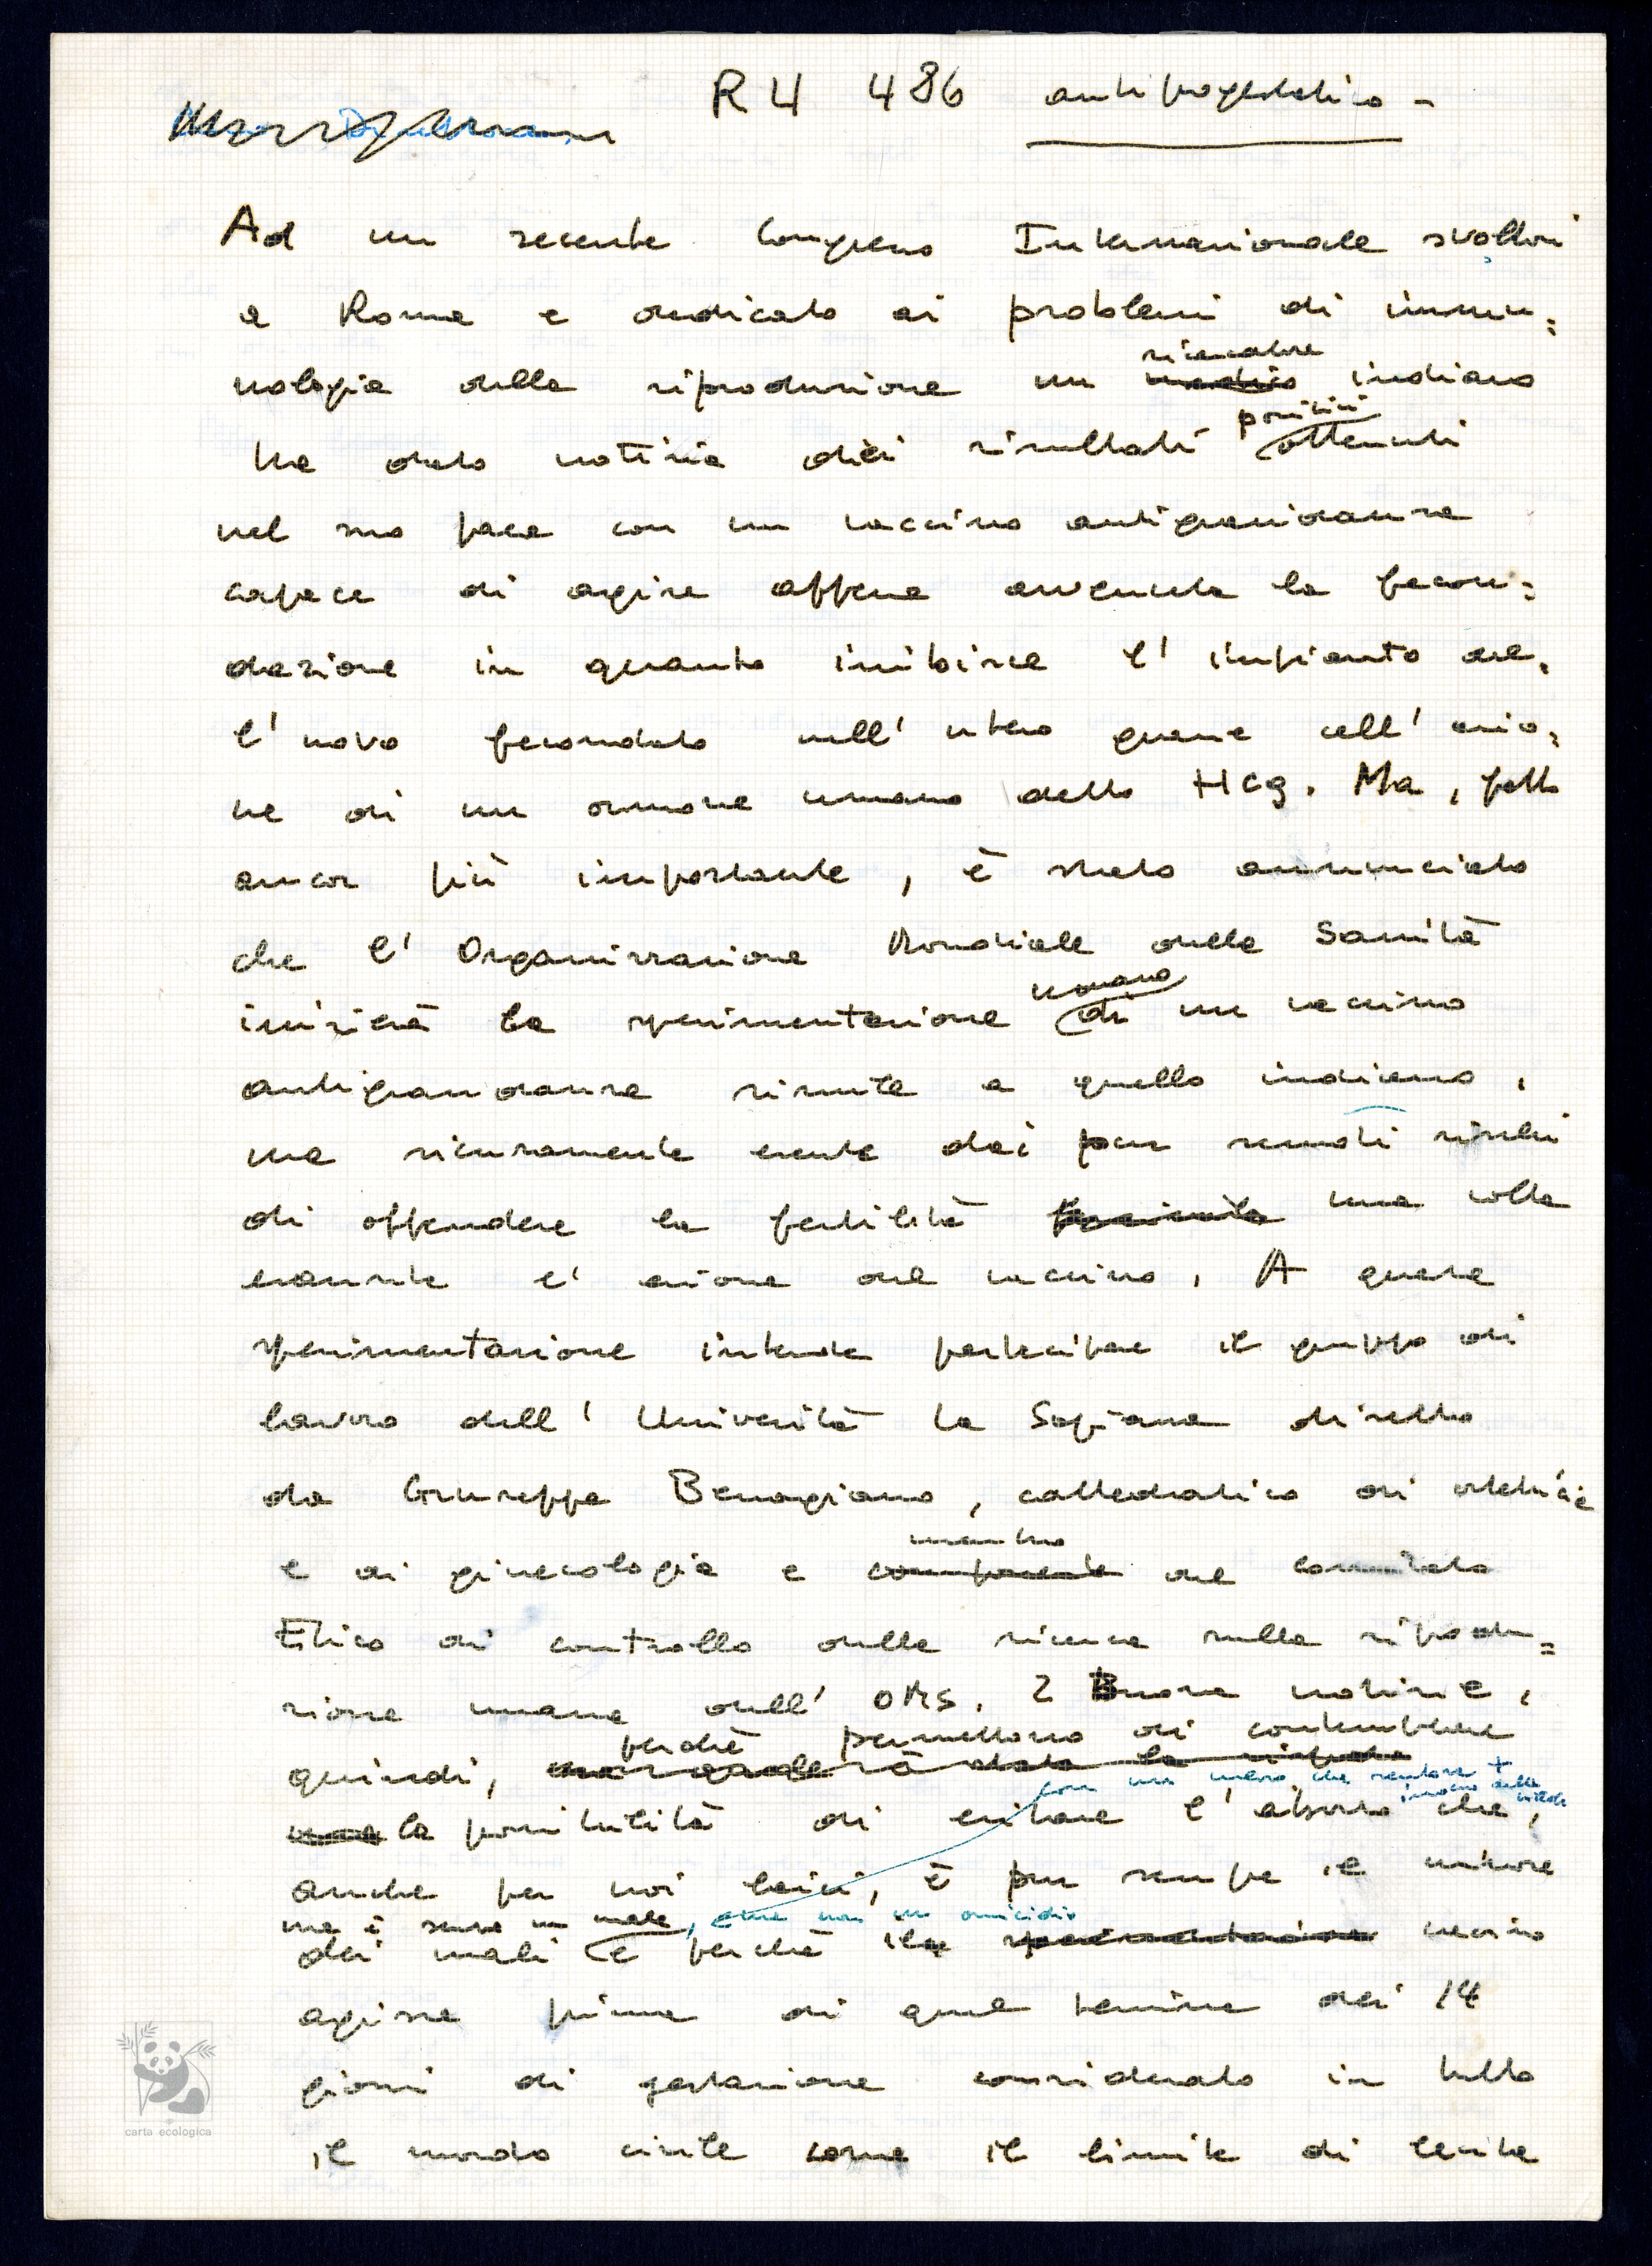 RU 486 antiprogestatico -
Ad un recente Congresso Internazionale svoltosi
a Roma e dedicato ai problemi di immu=
nologia della riproduzione un ricercatore indiano
ha dato notizia dei risultati positivi ottenuti
nel suo paese con un vaccino antigravidanza
capace di agire appena avvenuta la fecon=
dazione in quanto inibisce l'impianto del=
l'uovo fecondato nell'utero grazie all'azio=
ne di un ormone umano detto Hcg. Ma, fatto
ancor più importante, è stato annunciato
che l'Organizzazione Mondiale della Sanità
inizierà la sperimentazione umana di un vaccino
antigravidanza simile a quello indiano,
ma sicuramente esente dai pur remoti rischi
di offendere la fertilità una volta
esaurita l'azione del vaccino. A questa
sperimentazione intende partecipare il gruppo di
lavoro dell'Università La Sapienza diretto
da Giuseppe Benagiano, cattedratico di ostetricia
e di ginecologia e membro del comitato
Etico di controllo della ricerca sulla riprodu=
zione umana dell'OMS. 2 Buone notizie,
quindi, perchè permettono di contemplare
la possibilità di evitare l'aborto che,
con una mezzo che sembra + innocuo della pillola
anche per noi laici, è pur sempre il minore
ma è sempre un male, anche se non un omicidio
dei mali e perchè il vaccino
agisce prima di quel termine dei 14
giorni di gestazione considerato in tutto
il mondo civile come il limite di lecita
carta ecologica